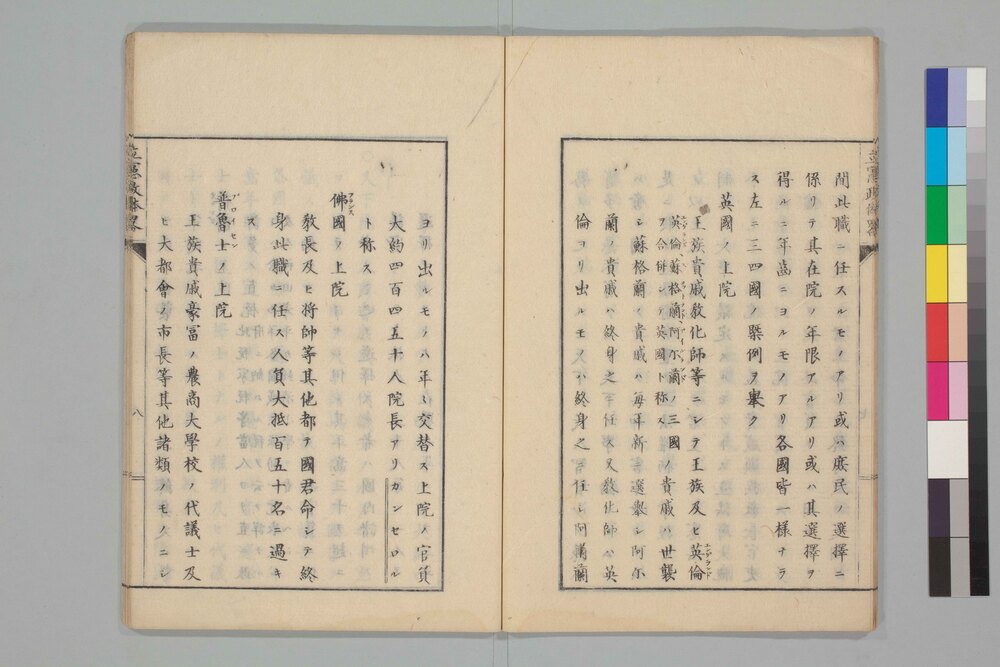 間此職ニ任スルモノアリ或ハ庶民ノ選擇ニ
係リテ其在院ノ年限アルアリ或ハ其選擇ヲ
得ルニ年齒ニヨルモノアリ各國皆一樣ナラ
ス左ニ三四國ノ槩例ヲ擧ク
英國ノ上院
王族貴戚敎化師等ニシテ王族及ヒ英倫
英倫蘇格蘭阿尔蘭ノ三國
ヲ合併シテ英國ト称ス
ノ貴戚ハ世襲
シ蘇格蘭ノ貴戚ハ每年新ニ選擧シ阿尔
蘭ノ貴戚ハ終身之ニ任ス又敎化師ハ英
倫ヨリ出ルモノハ終身之ニ任シ阿爾蘭
ヨリ出ルモノハ年々交替ス上院ノ官員
大約四百四五十人院長アリカンセロル
ト称ス
佛國ノ上院
フランス
敎長及ヒ将帥等其他都テ國君命シテ終
身此職ニ任ス人員大抵百五十名ニ過キ
ス
普魯士ノ上院
プロイセン
王族貴戚豪冨ノ農商大學校ノ代議士及
ヒ大都會ノ市長等其他諸類ノモノニシ
立憲政体略
八